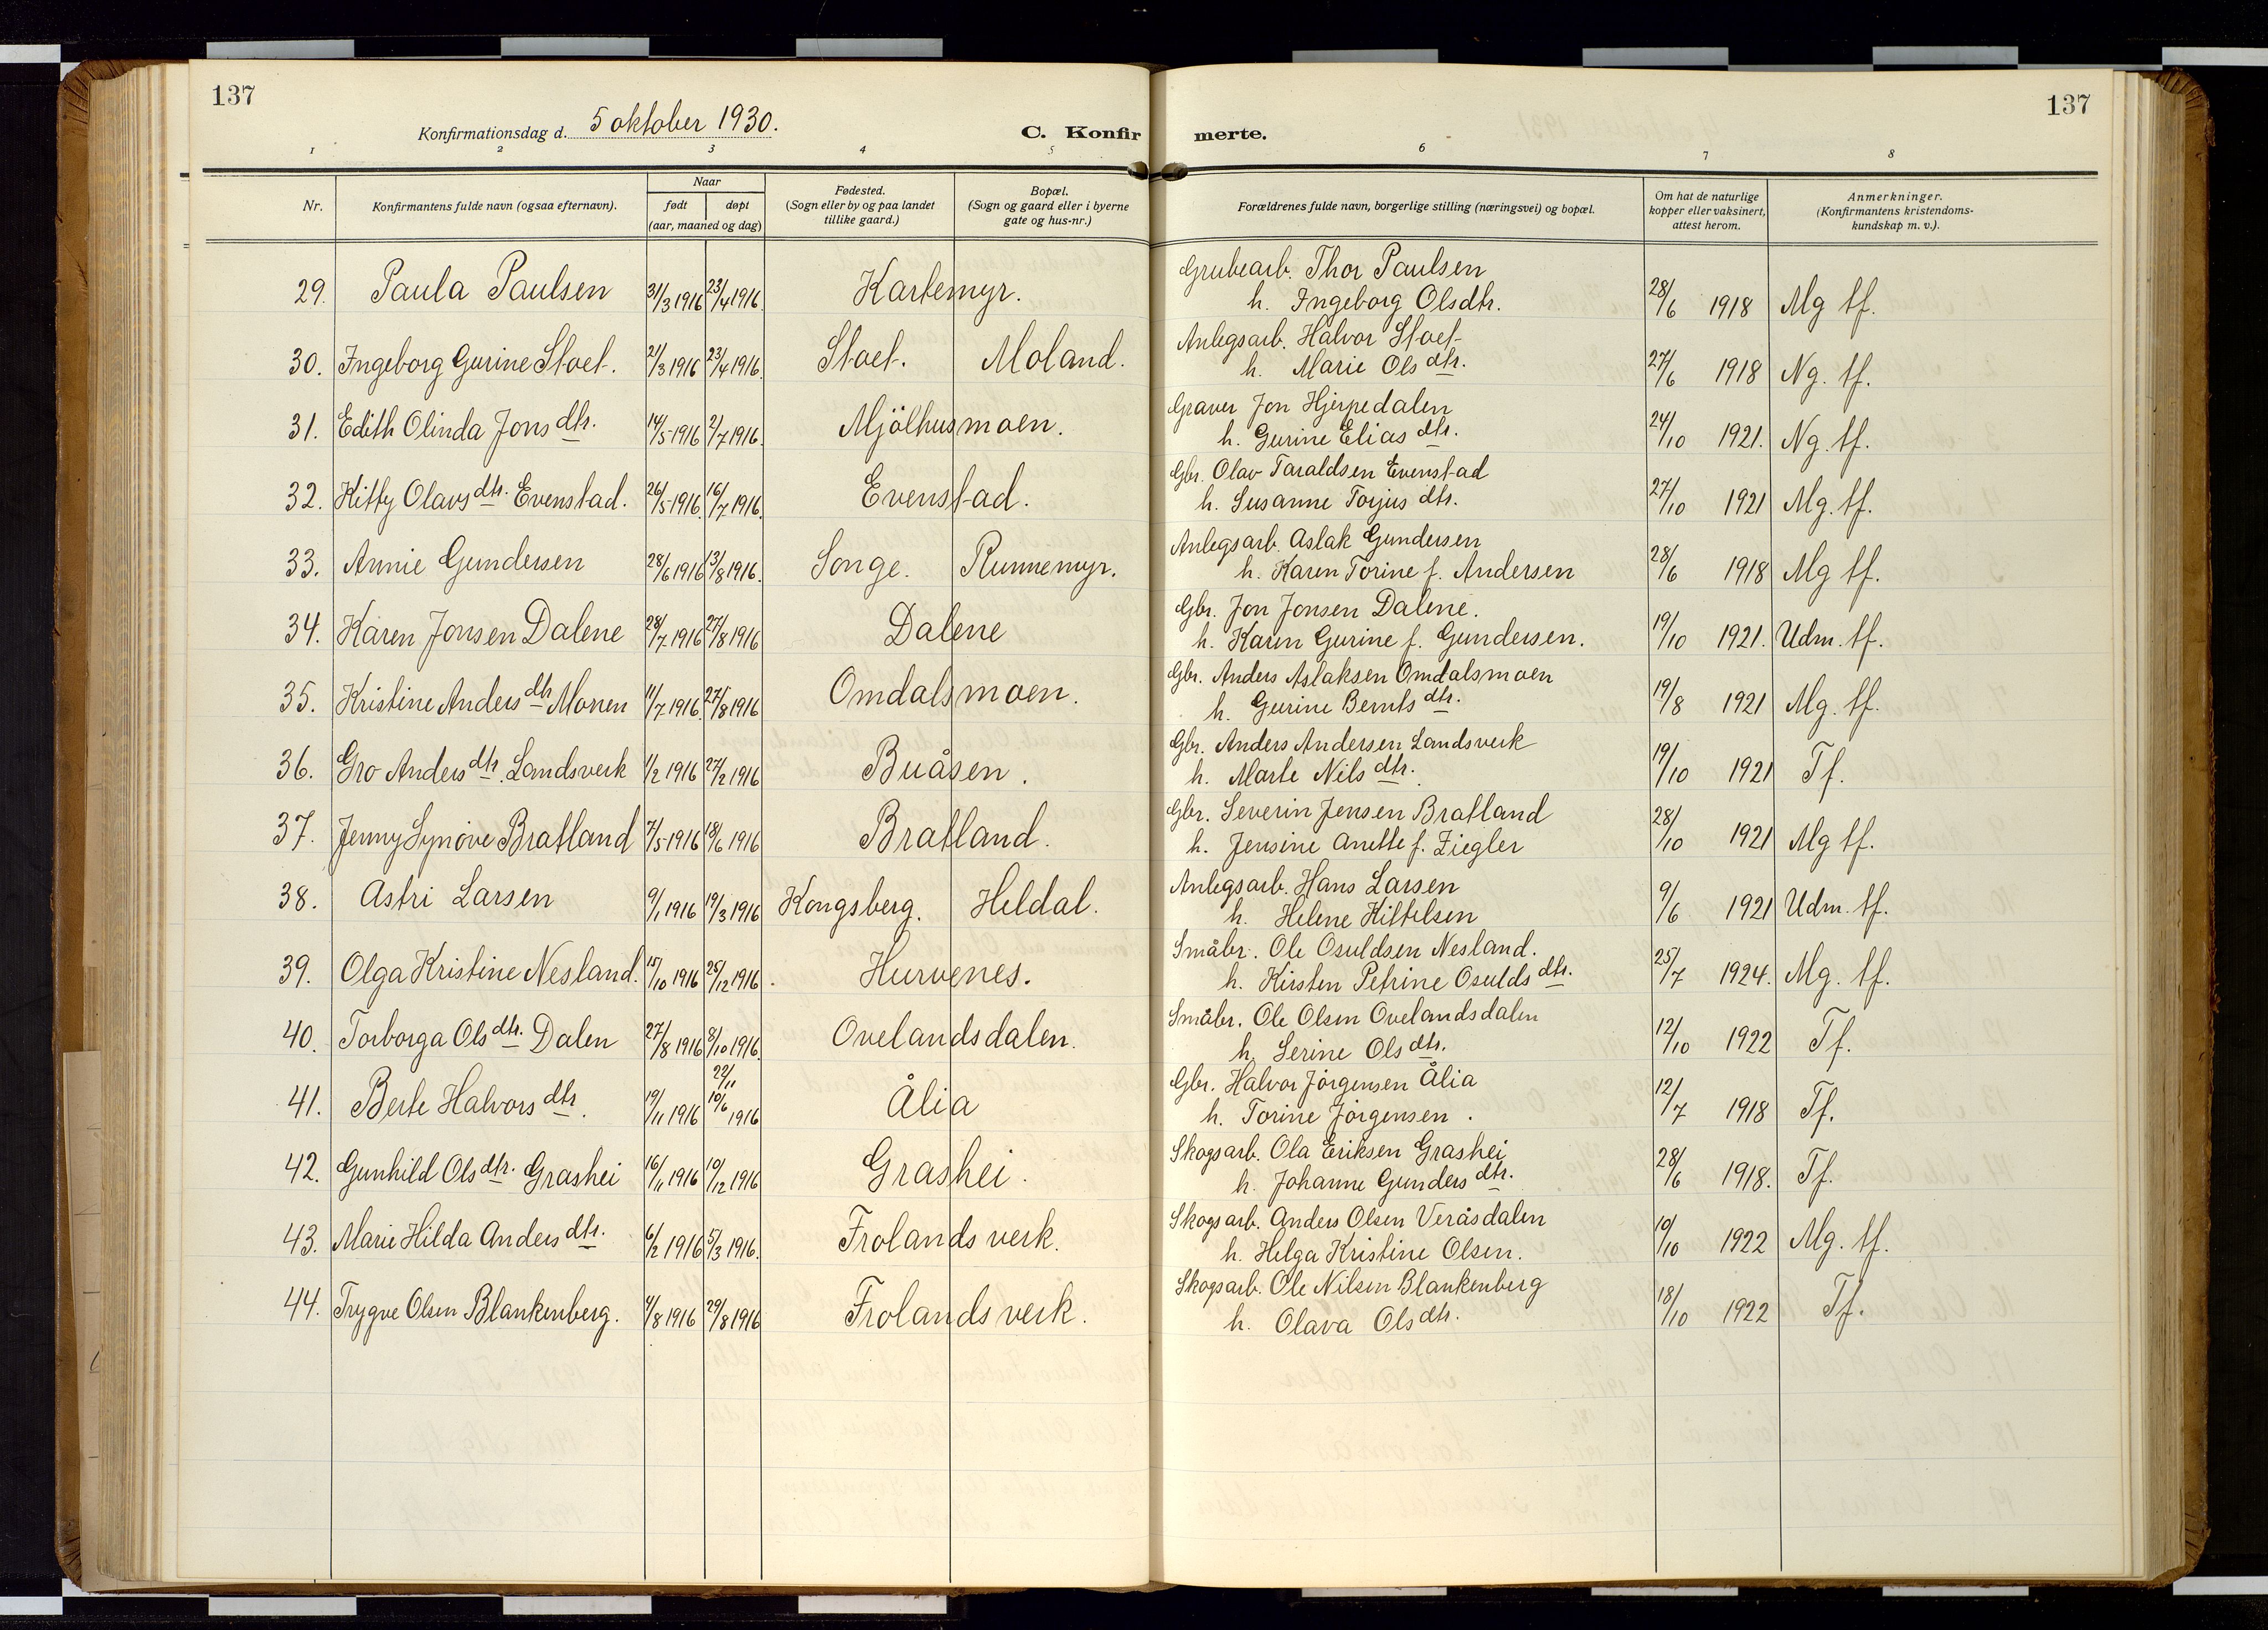 137
137
Konfirmationsdag d. 5 oktober 1930.
C. Konfirmerte.
1 2 3 4 5 6 7 8
Nr.
Konfirmantens fulde navn (ogsaa efternavn).
Naar
født
døpt
(aar, maaned og dag)
Fødested.
(Sogn eller by og paa landet
tillike gaard.)
Bopæl.
(Sogn og gaard eller i byerne
gate og hus-nr.)
Forældrenes fulde navn, borgerlige stilling (næringsvei) og bopæl.
Om hat de naturlige
kopper eller vaksinert,
attest herom.
Anmerkninger.
(Konfirmantens kristendoms-
kundskap m. v.).
29. Paula Paulsen 31/3 1916 23/4 1916. Kartemyr. Grubearb. Thor Paulsen
h. Ingeborg Olsdtr. 28/6 1918 Mg tf.
30. Ingeborg Gurine Stoet. 21/3 1916 23/4 1916. Stoet. Moland. Anlegsarb. Halvor Stoet
h. Marie Olsdtr. 27/6 1918 Ng. tf.
31. Edith Olinda Jonsdtr. 14/5 1916 2/7 1916. Mjölhusmoen. Graver Jon Hjerpedalen
h. Gurine Eliasdtr. 24/10 1921. Ng. tf.
32. Kitty Olavsdtr. Evenstad. 26/5 1916. 16/7 1916. Evenstad. Gbr. Olav Taraldsen Evenstad
h. Susanne Torjusdtr. 27/10 1921 Mg. tf.
33. Annie Gundersen 28/6 1916 13/8 1916. Songe. Runnemyr. Anlegsarb. Aslak Gundersen
h. Karen Torine f. Andersen 28/6 1918 Mg tf.
34. Karen Jonsen Dalene 28/7 1916 27/8 1916 Dalene Gbr. Jon Jonsen Dalene.
h. Karen Gurine f. Gundersen. 19/10 1921. Udm. tf.
35. Kristine Andersdtr Monen 11/7 1916. 27/8 1916 Omdalsmoen. Gbr. Anders Aslaksen Omdalsmoen
h. Gurine Berntsdtr. 19/8 1921 Mg. tf.
36. Gro Andersdtr. Landsverk 1/2 1916 27/2 1916 Buåsen. Gbr. Anders Andersen Landsverk
h. Marte Nilsdtr. 19/10 1921 Tf.
37. Jenny Synöve Bratland 7/5 1916 18/6 1916 Bratland. Gbr. Severin Jensen Bratland
h. Jensine Anette f. Ziegler 28/10 1921 Mg tf.
38. Astri Larsen 9/1 1916 19/3 1916 Kongsberg. Heldal. Anlegsarb. Hans Larsen
h. Helene Kittelsen 9/6 1921 Udm. tf.
39. Olga Kristine Nesland. 15/10 1916 25/12 1916. Hurvenes. Småbr. Ole Osuldsen Nesland.
h. Kirsten Petrine Osuldsdtr. 25/7 1924. Mg. tf.
40. Torborga Olsdtr. Dalen 27/8 1916 8/10 1916. Ovelandsdalen. Småbr. Ole Olsen Ovelandsdalen
h. Serine Olsdtr. 12/10 1922 Tf.
22/11
41. Berte Halvorsdtr. 19/11 1916 10/6 1916 Ålia Gbr. Halvor Jörgensen Ålia
h. Torine Jörgensen. 12/7 1918 Tf.
42. Gunhild Olsdtr. Grashei 16/11 1916 10/12 1916 Grashei. Skogsarb. Ola Eriksen Grashei
h. Johanne Gundersdtr. 28/6 1918. Tf.
43. Marie Hilda Andersdtr. 6/2 1916 5/3 1916. Frolands verk. Skogsarb. Anders Olsen Veråsdalen
h. Helga Kristine Olsen. 10/10 1922 Mg. tf.
44. Trygve Olsen Blankenberg. 4/8 1916 29/8 1916 Frolands verk. Skogsarb. Ole Nilsen Blankenberg
h. Olava Olsdtr. 18/10 1922 Tf.